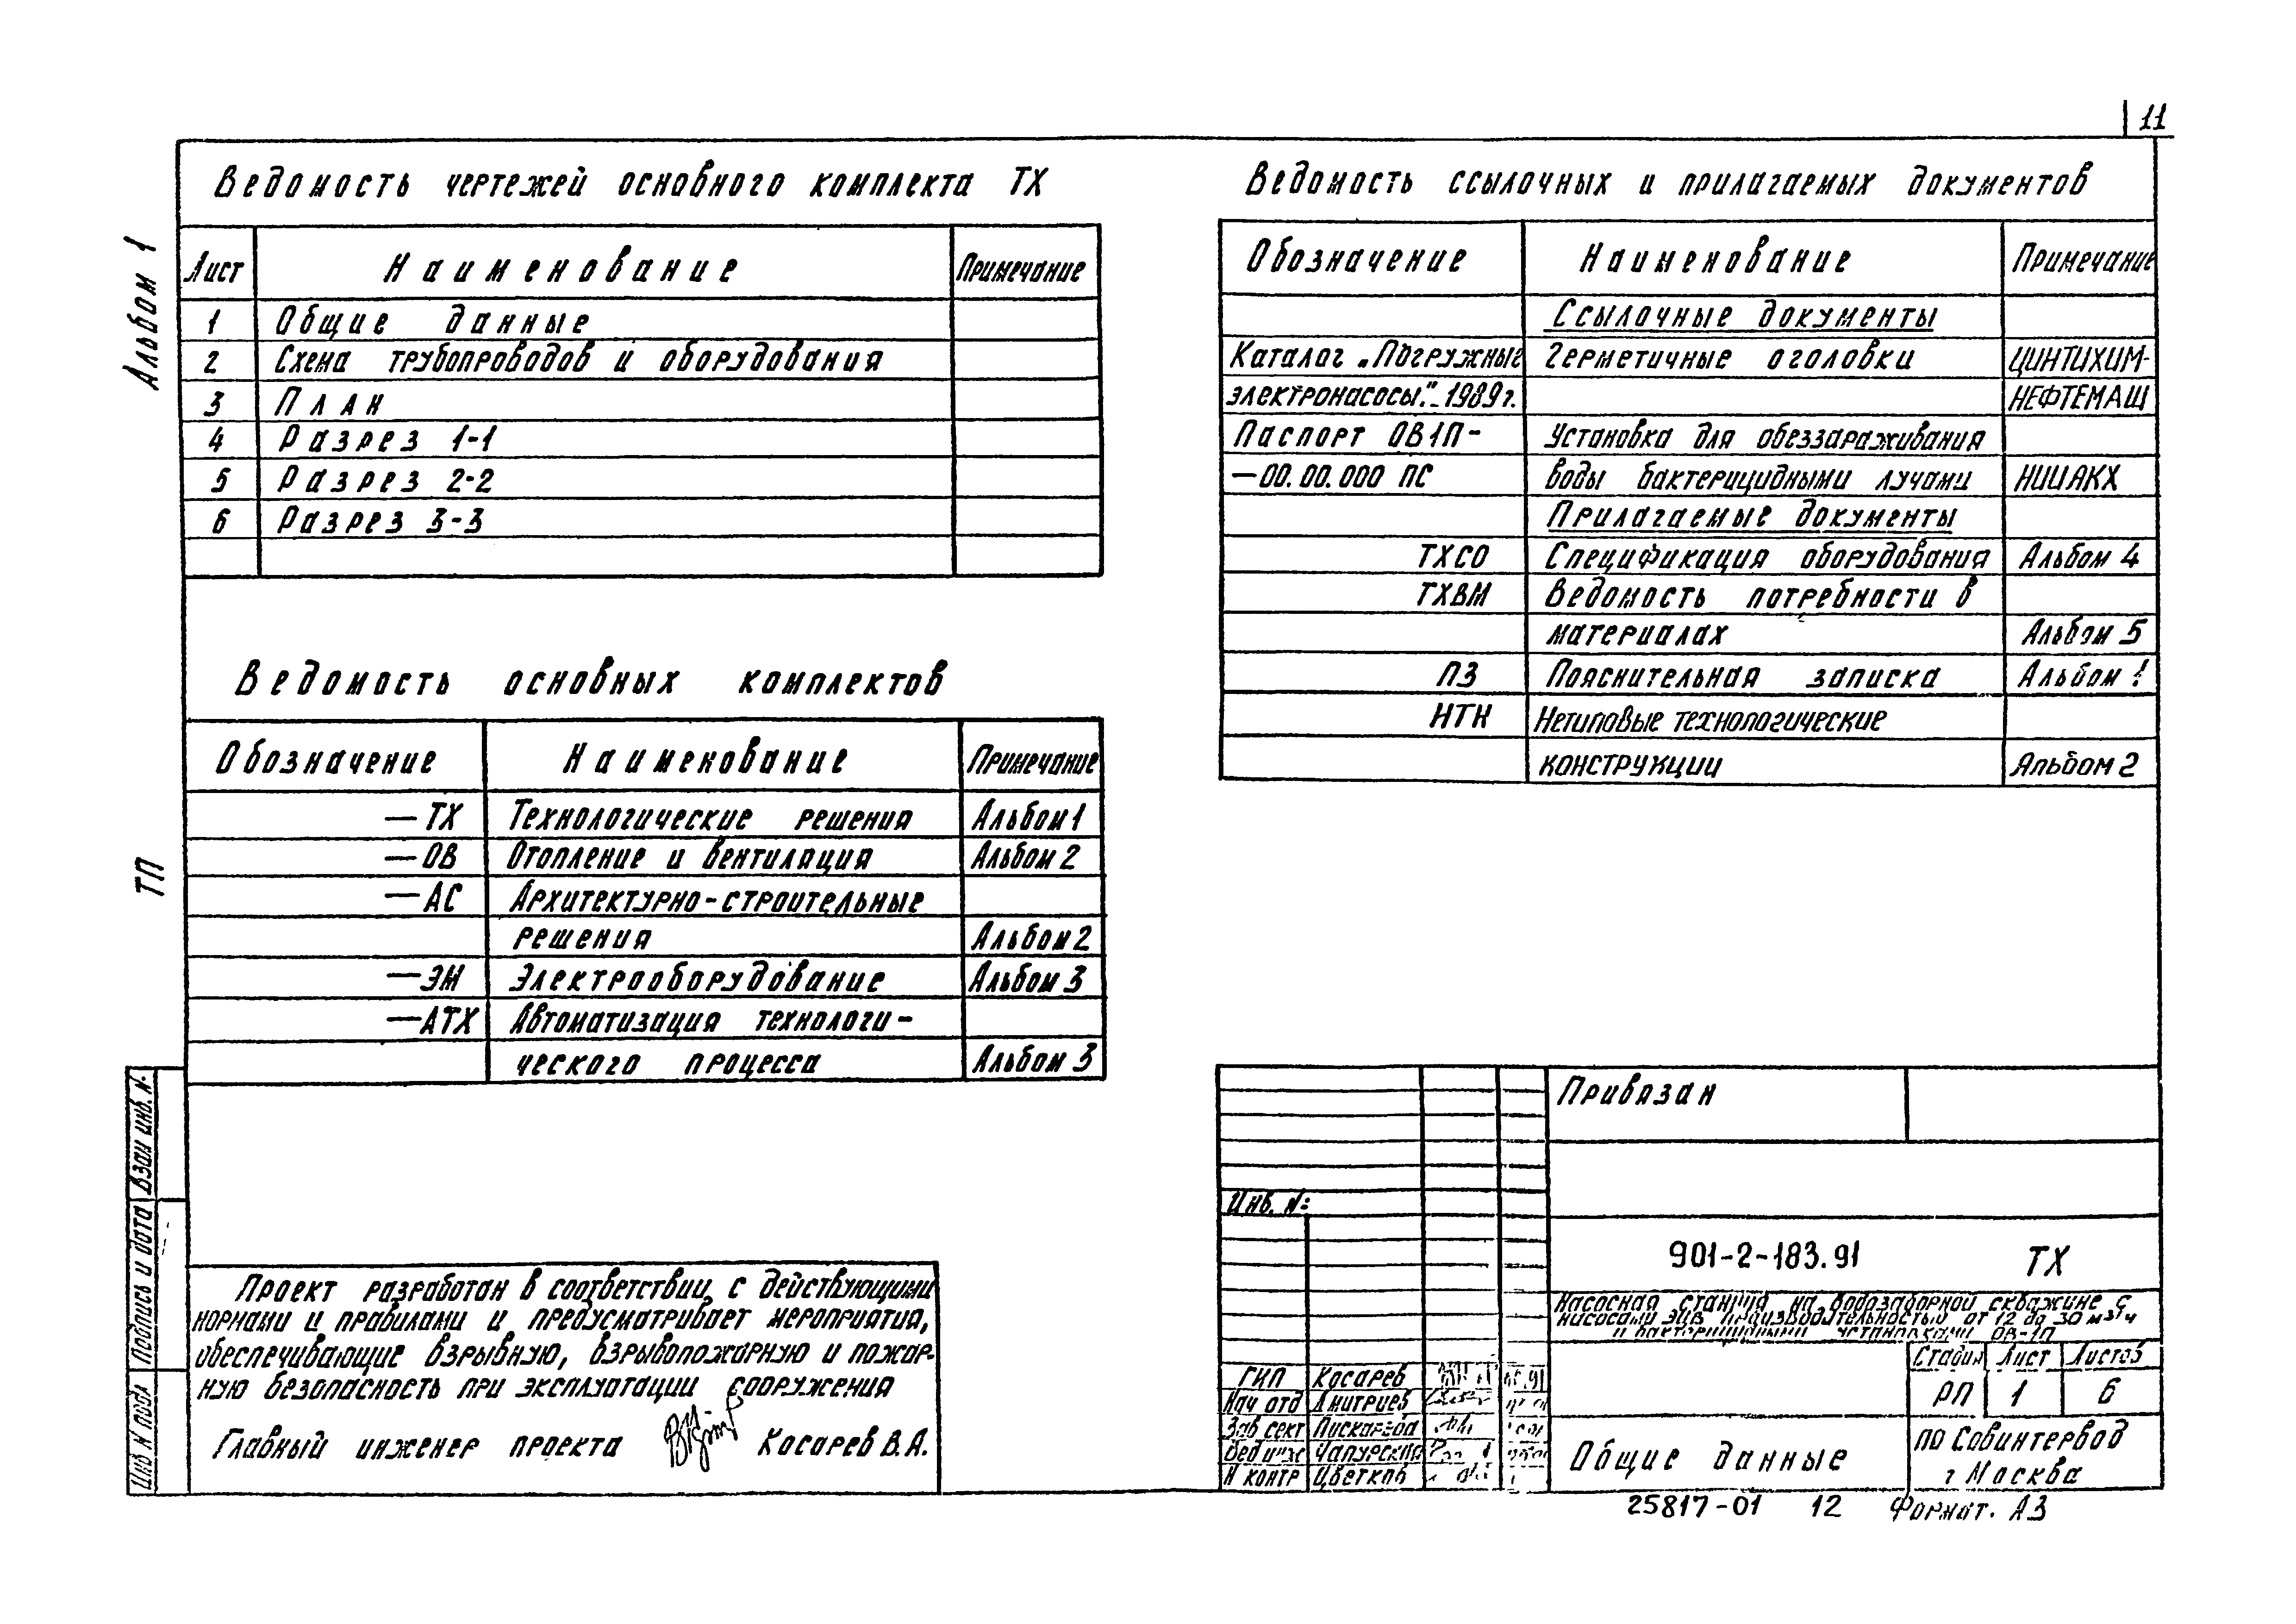 11
Альбом 1
ТП
Ведомость чертежей основного комплекта ТХ
Лист Наименование Примечание
1 Общие данные
2 Схема трубопроводов и оборудования
3 План
4 Разрез 1-1
5 Разрез 2-2
6 Разрез 3-3
Ведомость основных комплектов
Обозначение Наименование Примечание
—ТХ Технологические решения Альбом 1
—ОВ Отопление и вентиляция Альбом 2
—АС Архитектурно-строительные
решения Альбом 2
—ЭМ Электрооборудование Альбом 3
—АТХ Автоматизация технологи-
ческого процесса Альбом 3
Проект разработан в соответствии с действующими
нормами и правилами и предусматривает мероприятия,
обеспечивающие взрывную, взрывопожарную и пожар-
ную безопасность при эксплуатации сооружения
Главный инженер проекта Косарев В.А.
Взам инв. N.
Подпись и дата
Инв N подл
Ведомость ссылочных и прилагаемых документов
Обозначение Наименование Примечание
Ссылочные документы
Каталог „Погружные Герметичные оголовки ЦИНТИХИМ-
электронасосы."- 1989г. НЕФТЕМАШ
Паспорт ОВ1П- Установка для обеззараживания
—00.00.000 ПС воды бактерицидными лучами НИИАКХ
Прилагаемые документы
ТХСО Спецификация оборудования Альбом 4
ТХВМ Ведомость потребности в
материалах Альбом 5
ПЗ Пояснительная записка Альбом 1
НТК Нетиповые технологические
конструкции Альбом 2
Привязан
Инв. N:
901-2-183.91 ТХ
Насосная станция на водозаборной скважине с
насосами ЭЦВ производительностью от 12 до 30 м³/ч
и бактерицидными установками ОВ-1П
Стадия Лист Листов
РП 1 6
ГИП Косарев
Нач отд Дмитриев
Зав сект Пискарева
Вед инж
Н контр Цветков
Общие данные
ПО Совинтервод
г Москва
25817-01 12 Формат. А3